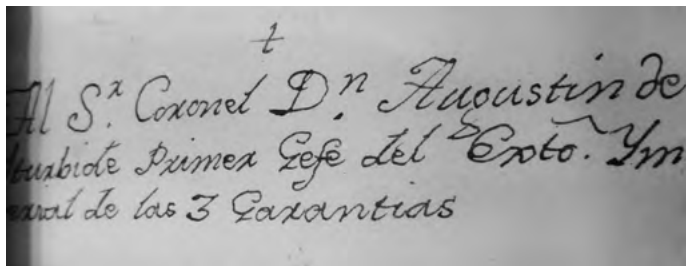 †
Al S.r Coronel D.n Augustin de
Iturbide Primer Gefe del Exto. Ym
perial de las 3 Garantias